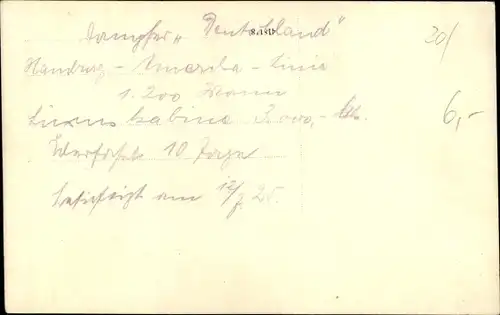 Dampfer „Deutschland"
20/
Hamburg - Amerika - Linie
1.200 Mann
Luxus Kabine 3000,- Mk.
6,-
Überfahrt 10 Tage
besichtigt am 12/7. 25.